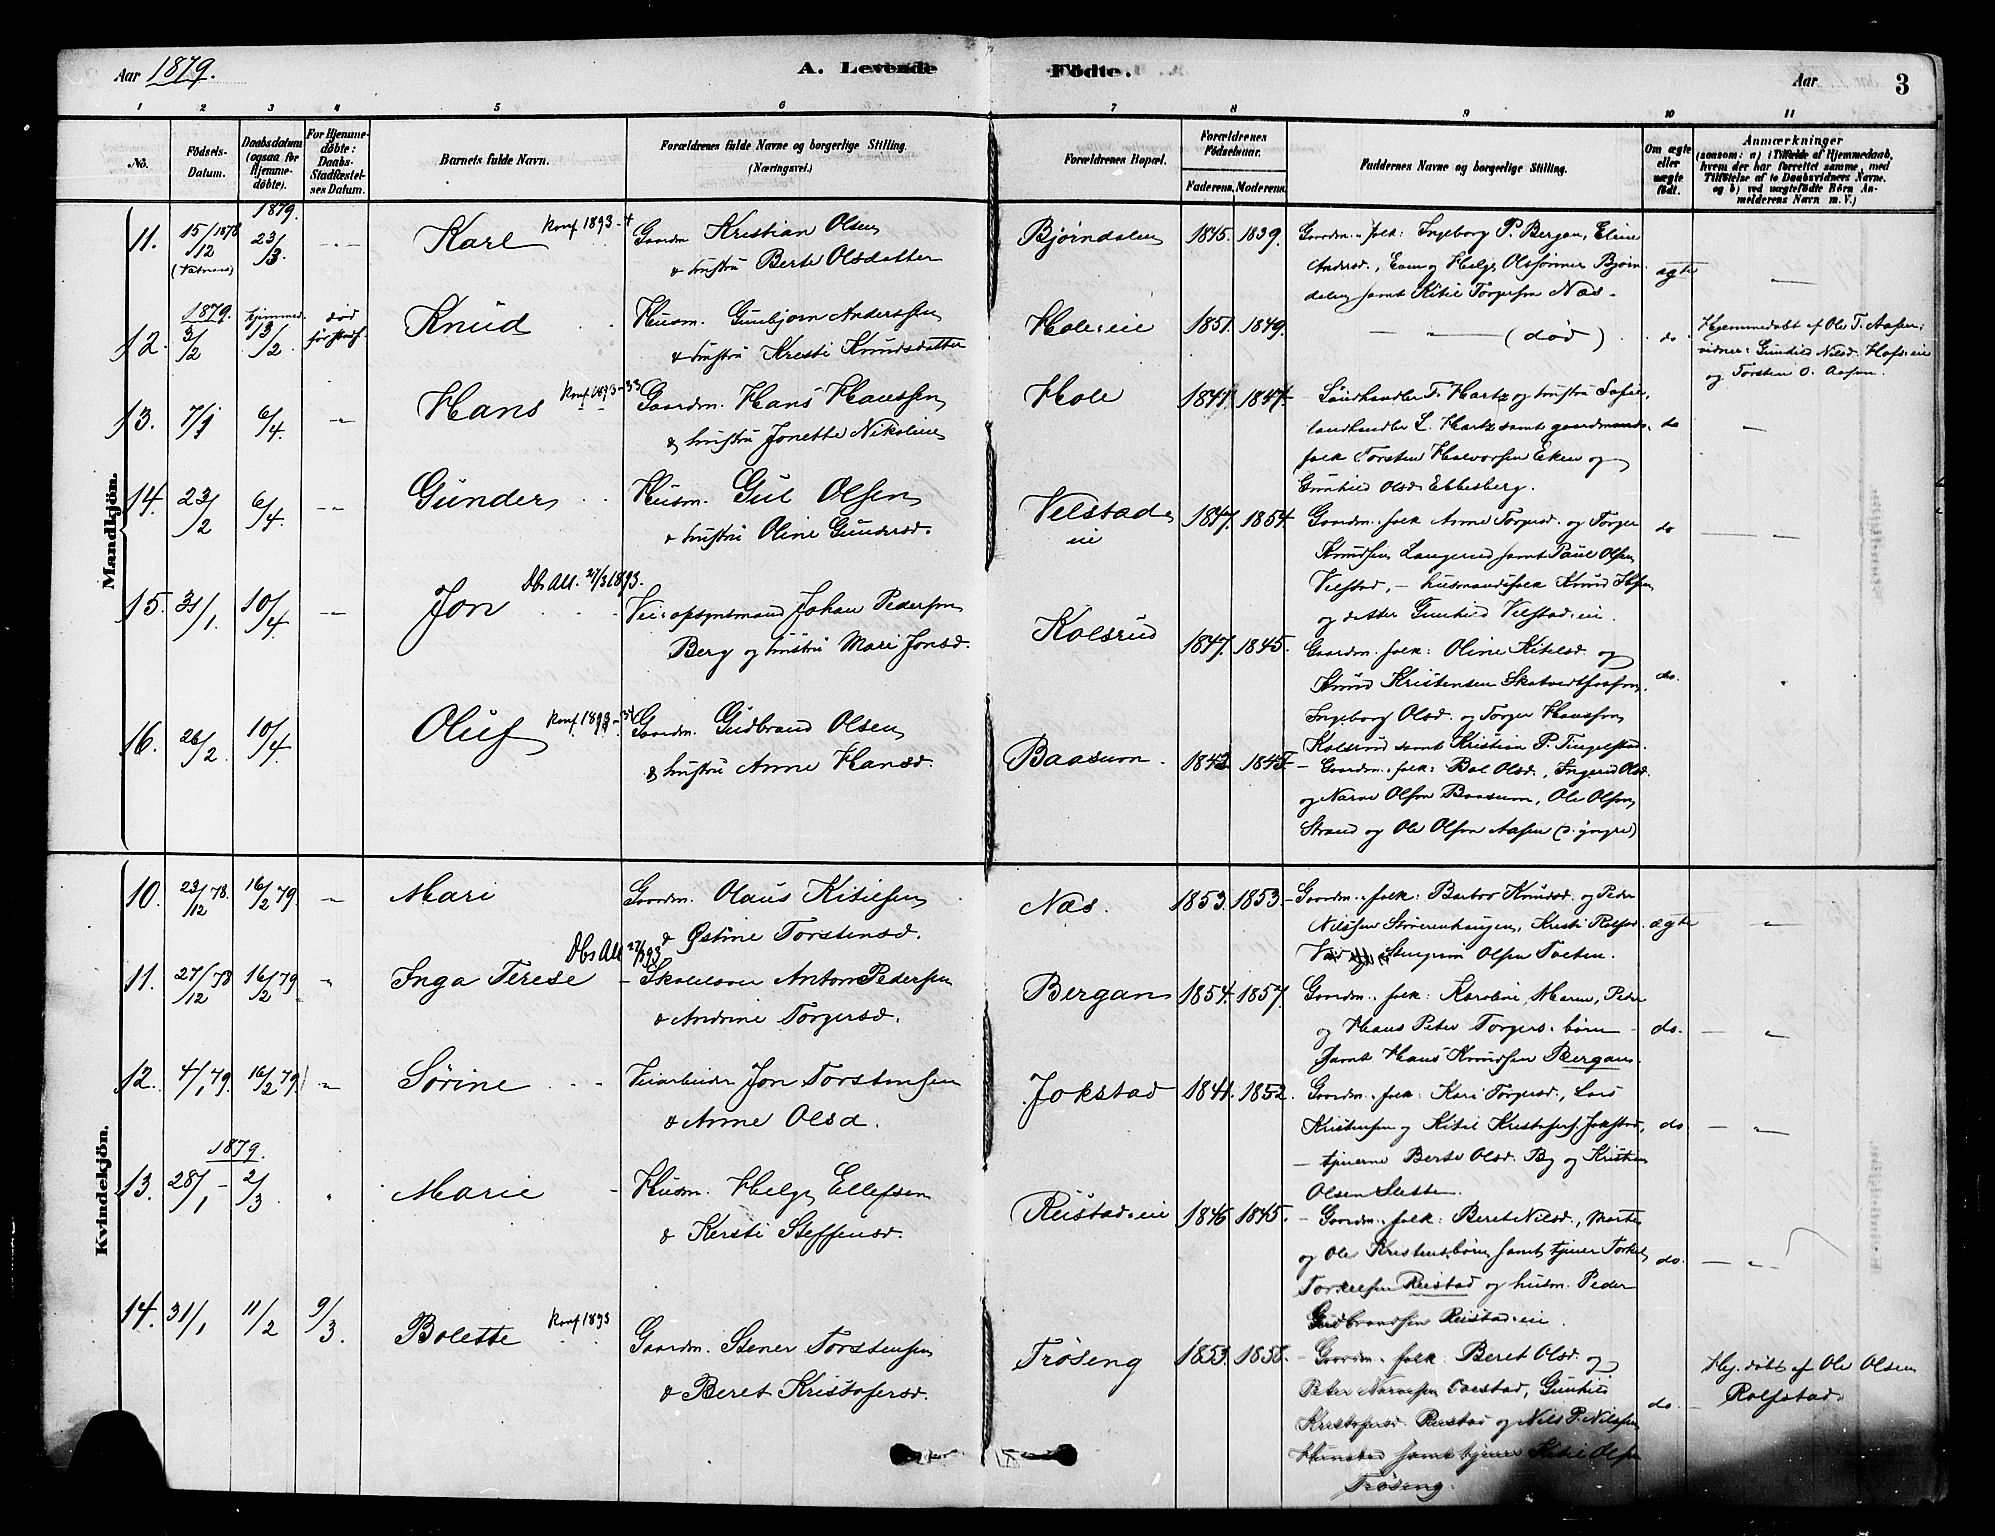 Aar 1879.
A. Levende Födte.
Aar
3
1 2 3 4 5 6 7 8 9 10 11
No.
Födsels-Datum.
Daabsdatum (ogsaa for Hjemmedöbte).
For Hjemmedöbte: Daabs-Stadfæstelses Datum.
Barnets fulde Navn.
Forældrenes fulde Navne og borgerlige Stilling. (Næringsvei.)
Forældrenes Bopæl.
Forældrenes Födselsaar.
Faderens. Moderens.
Faddernes Navne og borgerlige Stilling.
Om ægte eller uægte født.
Anmærkninger
(saasom: a) i Tilfælde af Hjemmedaab, hvem der har forrettet samme, med Tilföielse af to Daabsvidners Navne, og b) ved uægtefödte Börn Anmelderens Navn m. V.)
Mandkjön.
1879.
11. 15/12 1878 23/3 Karl Konf 1893-4
Gaardm Kristian Olsen
& hustru Berte Olsdatter
Bjørndalen 1845. 1839.
Gaardm. folk: Ingeborg P. Bergan, Eline
Andersd., Even og Helge Olssønner Bjørn
dalen samt Kitil Torgersen Næs.
ægte
1879.
12. 3/2 hjemmed. 13/2 død før stadf.
Knud
Husm. Gunbjørn Anderssen
& hustru Kresti Knudsdatter
Hole-eie 1851. 1849.
(død)
do
Hjemmedøbt af Ole T. Aasen,
vidner: Gunhild Nilsd. Hole-eie
og Torsten O. Aasen.
13. 7/1 6/4 Hans Konf 1893-33
Gaardm. Hans Hanssen
& hustru Jonette Nikoline
Hole 1841. 1847.
Landhandler F. Hartz og hustru Sofie,
landhandler L. Hartz samt gaardmands
folk Torsten Halvorsen Eken og
Gunhild Olsd. Ebbesberg.
do
14. 23/2 6/4 Gunder
Husm. Gul Olsen
& hustru Oline Gundersd.
Velstad-eie 1847. 1854.
Gaardm. folk Anne Torgersd. og Torger
Knudsen Langerud samt Paul Olsen
Velstad, - husmandsfolk Knud
og datter Gunhild Velstad-eie.
do
15. 31/1. 10/4 Jon Dbs Att. 27/3 1893.
Vei-opsynsmand Johan Pedersen
Berg og hustru Mari Jonsd.
Kolsrud 1847. 1845.
Gaardm. folk: Oline Kitelsd. og
Knud Kristensen
Ingeborg Olsd. og Torger Hanssen
Kolsrud samt Kristian P. Tingelstad.
do.
16. 26/2. 10/4 Oluf Konf 1893-34
Gaardm. Gudbrand Olsen
& hustru Anne Hansd.
Baasum. 1842 1845.
Gaardm. folk: Bol Olsd., Ingerid Olsd.
og Narve Olsen Baasum, Ole Olsen
Strand og Ole Olsen Aasen (d. yngre)
Kvindekjön.
10. 23/12 78. 16/2 79. Mari
Gaardm. Olaus Kitilsen
& Østine Torstensd.
Næs. 1853. 1853.
Gaardm. folk: Barbro Knudsd. og Peder
Nilssen Støverenhaugen, Kresti Rolfsd.
Steingrim Olsen Toeten.
ægte
11. 27/12 78 16/2 79 Inga Terese Dbs Att 27/3 93
Skolelærer Anton Pedersen
& Andrine Torgersd.
Bergan 1854. 1857.
Gaardm. folk: Karoline, Maren, Peder
og Hans Peter Torgers. børn
samt Hans Knudsen Bergan.
do.
12. 4/1 79. 16/2 79 Sørine
Veiarbeider Jon Torstensen
& Anne Olsd.
Jokstad 1841. 1852.
Gaardm. folk: Kari Torgersd., Lars
Kristensen og Kitil Kristofers. Jokstad,
tjenerne Berte Olsd. By og Kristian
Olsen Sletten.
do
1879.
13. 28/1 2/3 Marie
Husm. Helge Ellefsen
& Kersti Steffensd.
Reistad-eie 1846 1845.
Gaardm. folk: Beret Nilsd., Marte
og Ole Kristensbørn samt tjener Torkel
Torkelsen Reistad og husm. Peder
Gudbrandsen Reistad-eie.
do.
14. 31/1 11/2 9/3. Bolette Konf 1893
Gaardm. Stener Torstensen
& Beret Kristofersd.
Trøseng 1853. 1858.
Gaardm. folk: Beret Olsd. og
Peter Narvesen Toestad, Gunhild
Kristofersd. Reistad og Nils P. Nilssen
samt tjener Kitil Olsen
Trøseng.
do.
Hj. døbt af Ole Olsen
Rolfstad.